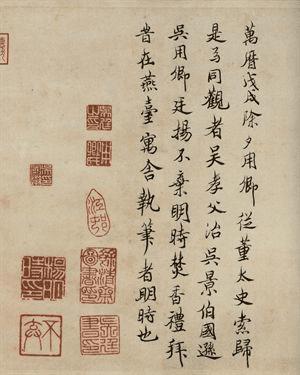 萬曆戊戌除夕用卿從董太史索歸
是日同觀者吳孝父治吳景伯國遜
吳用卿廷揚不棄明時焚香禮拜
旹在燕臺寓舍執筆者明時也
楊明時印
不弃